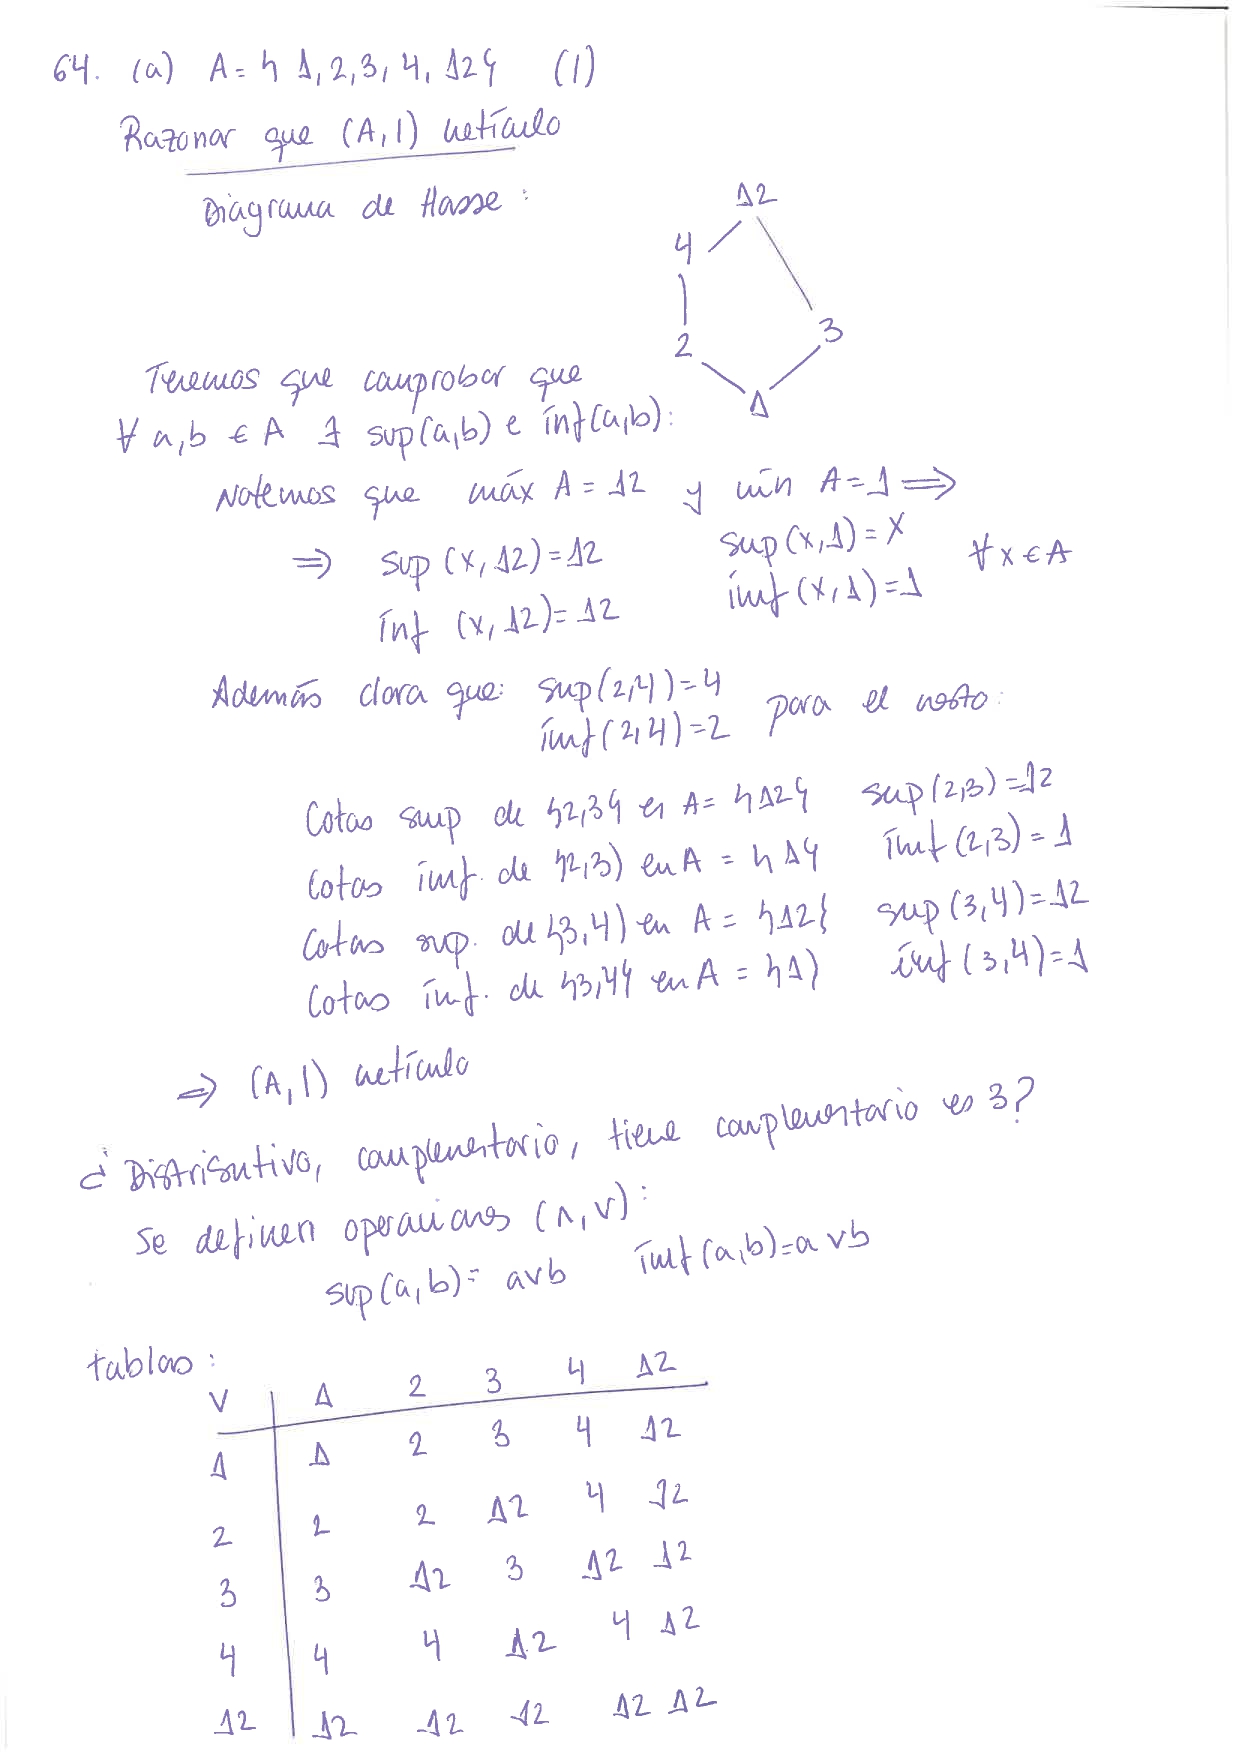 64. (a) A = { 1, 2, 3, 4, 12 } (|)
Razonar que (A, |) retículo
Diagrama de Hasse:
12
4
3
2
1
Tenemos que comprobar que
∀ a, b ∈ A ∃ sup(a,b) e ínf(a,b):
Notemos que máx A = 12 y mín A = 1 ⟹
⟹ sup (x, 12) = 12 sup (x, 1) = x ∀ x ∈ A
ínf (x, 12) = 12 ínf (x, 1) = 1
Además claro que: sup(2,4) = 4 para el resto:
ínf(2,4) = 2
Cotas sup de {2,3} en A = {12} sup(2,3) = 12
Cotas ínf. de {2,3} en A = {1} ínf(2,3) = 1
Cotas sup. de {3,4} en A = {12} sup(3,4) = 12
Cotas ínf. de {3,4} en A = {1} ínf(3,4) = 1
⟹ (A, |) retículo
¿Distributivo, complementario, tiene complementario es 3?
Se definen operaciones (∧, ∨):
sup(a,b) = a∨b ínf(a,b) = a∨b
tablas:
∨ | 1 2 3 4 12
1 | 1 2 3 4 12
2 | 2 2 12 4 12
3 | 3 12 3 12 12
4 | 4 4 12 4 12
12 | 12 12 12 12 12